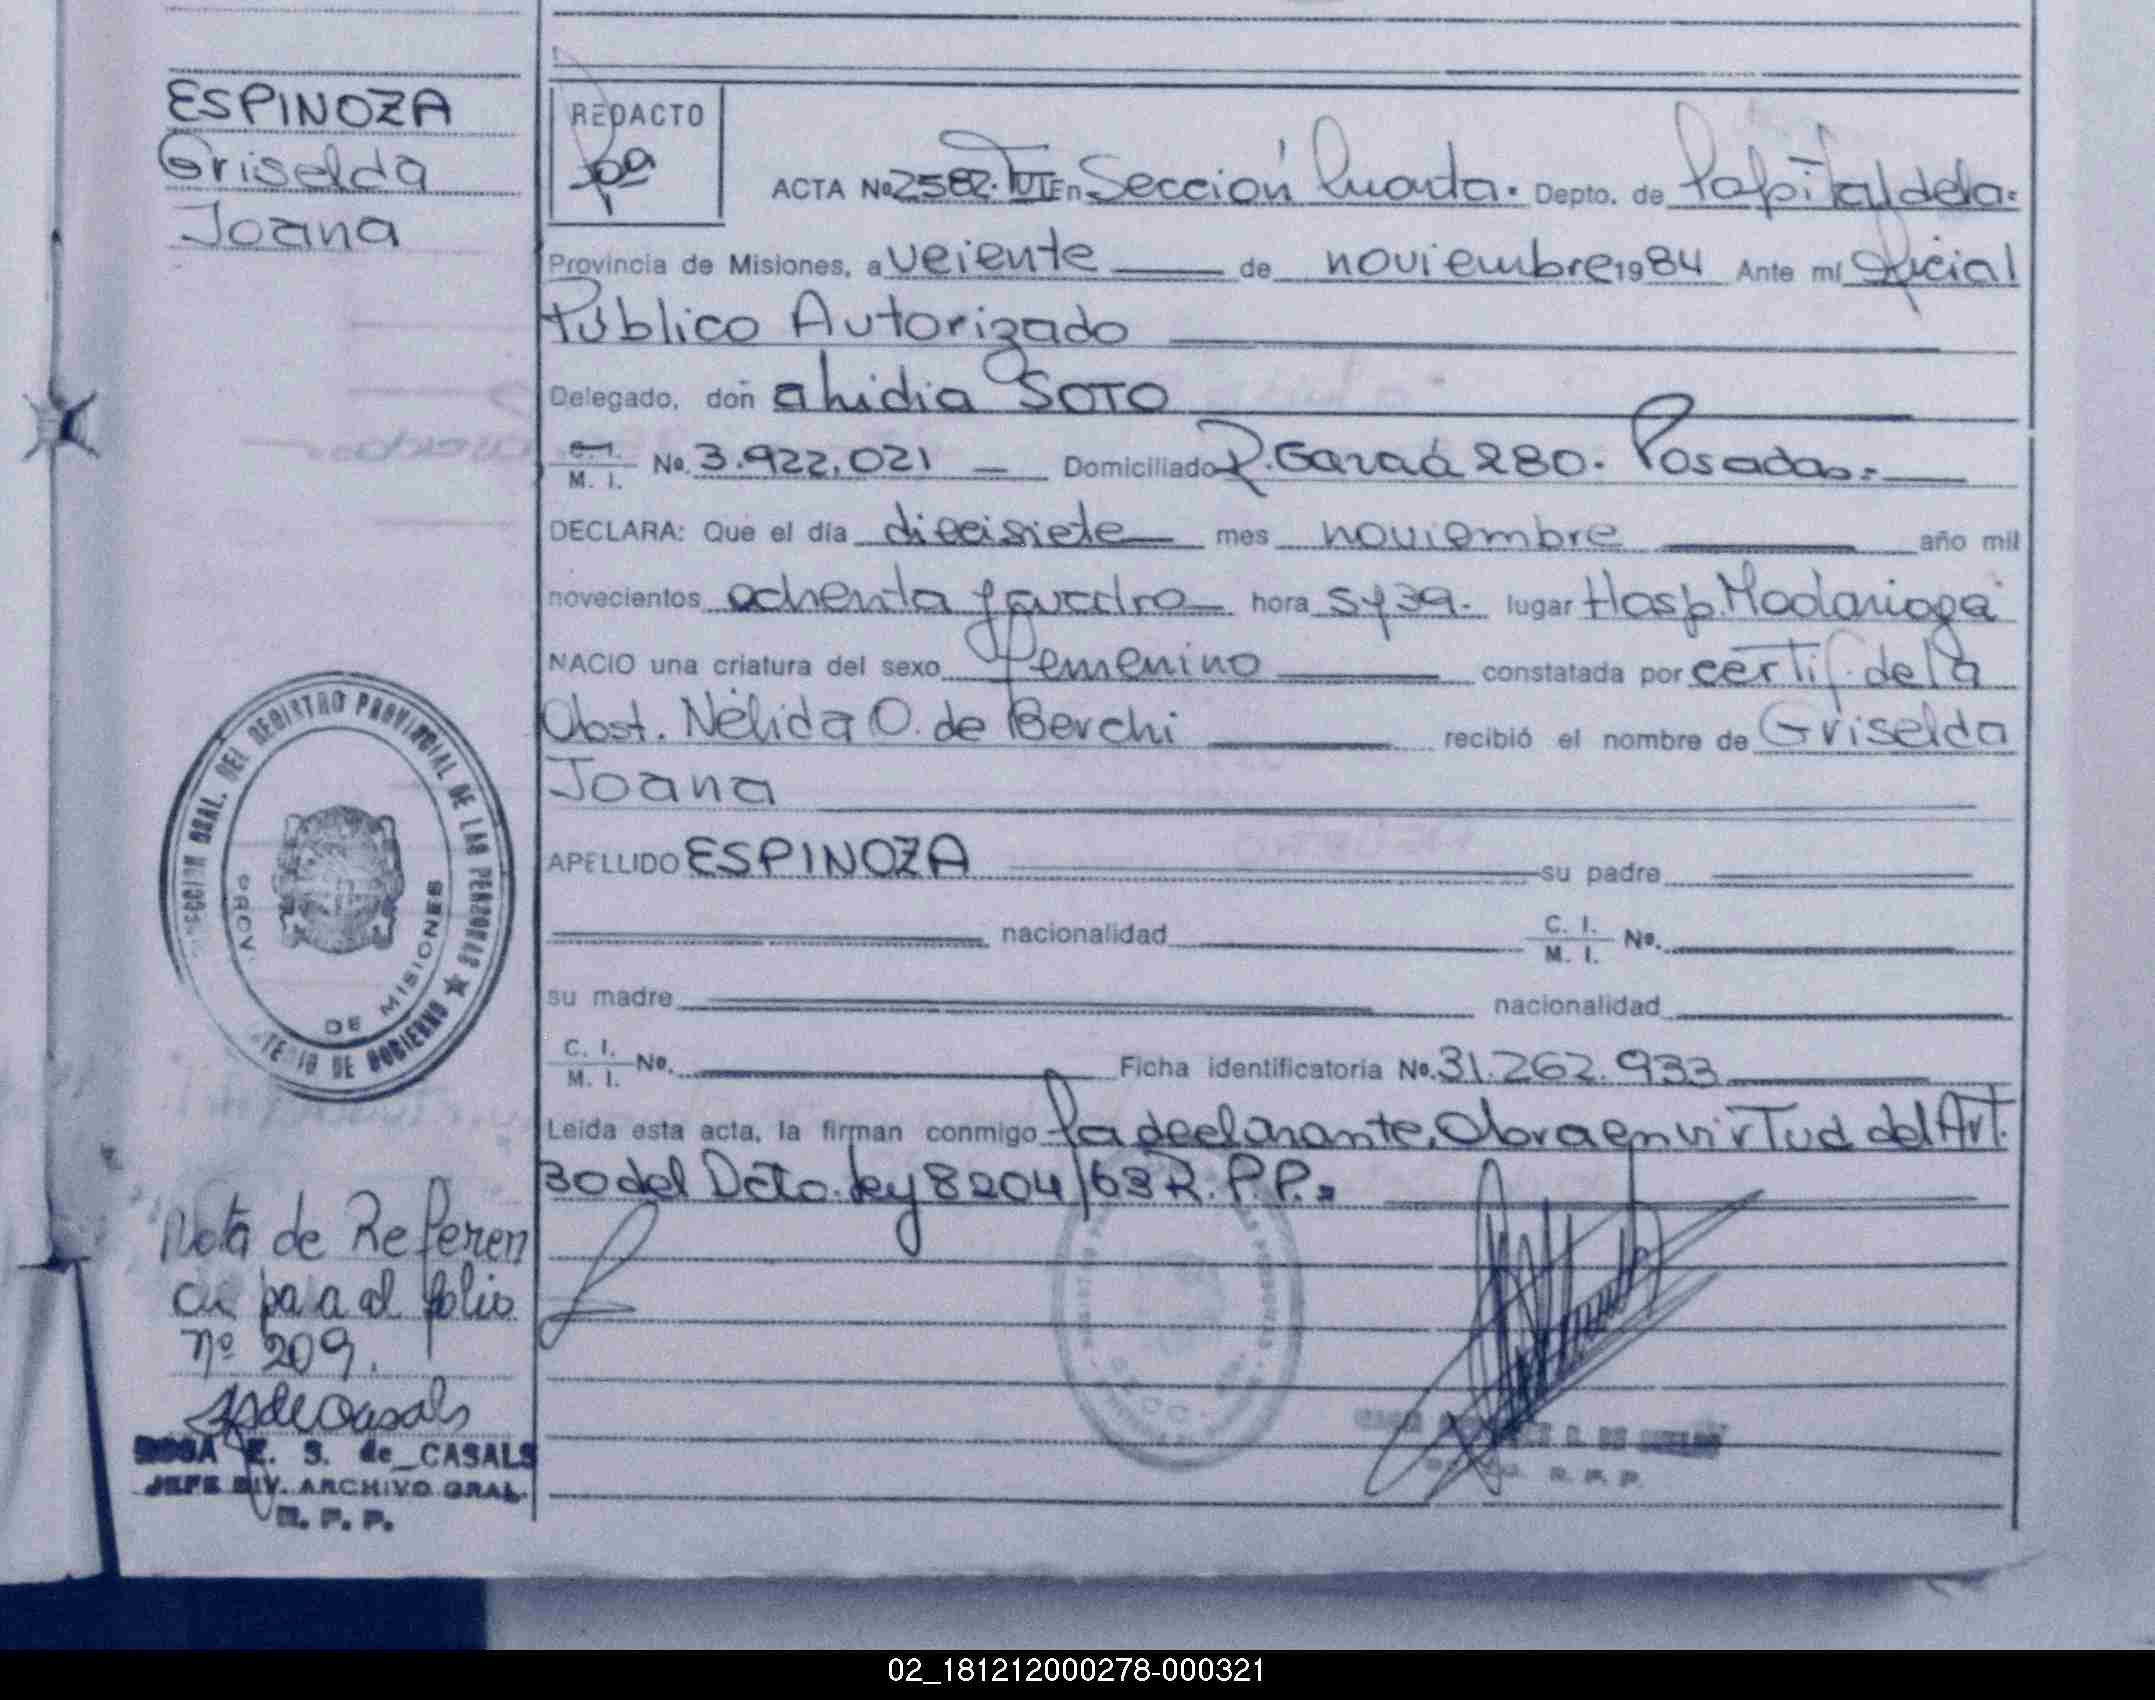 ESPINOZA
Griselda
Joana
REDACTO
ACTA No 2582. TVI En Sección Cuarta. Depto. de Capital de la
Provincia de Misiones, a veiente de noviembre 1984 Ante mí Oficial
Público Autorizado
Delegado, don alhidia SOTO
C. I. M. I. No. 3.922.021 Domiciliado R. Garaá 280. Posadas.
DECLARA: Que el día diecisiete mes noviembre año mil
novecientos ochenta y cuatro hora 5 y 39. lugar Hosp. Madariaga
NACIO una criatura del sexo femenino constatada por certif. de la
Obst. Nélida O. de Berchi recibió el nombre de Griselda
Joana
APELLIDO ESPINOZA su padre
nacionalidad C. I. M. I. No.
su madre nacionalidad
C. I. M. I. No. Ficha identificatoria No. 31.262.933
Leída esta acta, la firman conmigo la declarante. Obra en virtud del Art.
30 del Dcto. ley 8204/63 R.P.P.
DEL REGISTRO PROVINCIAL DE LAS PERSONAS
PROV. DE MISIONES
DE GOBIERNO
Nota de Referen
cia para al folio
nº 209.
ROSA E. S. de CASALS
JEFE DIV. ARCHIVO GRAL.
R. P. P.
R. P. P.
02_181212000278-000321